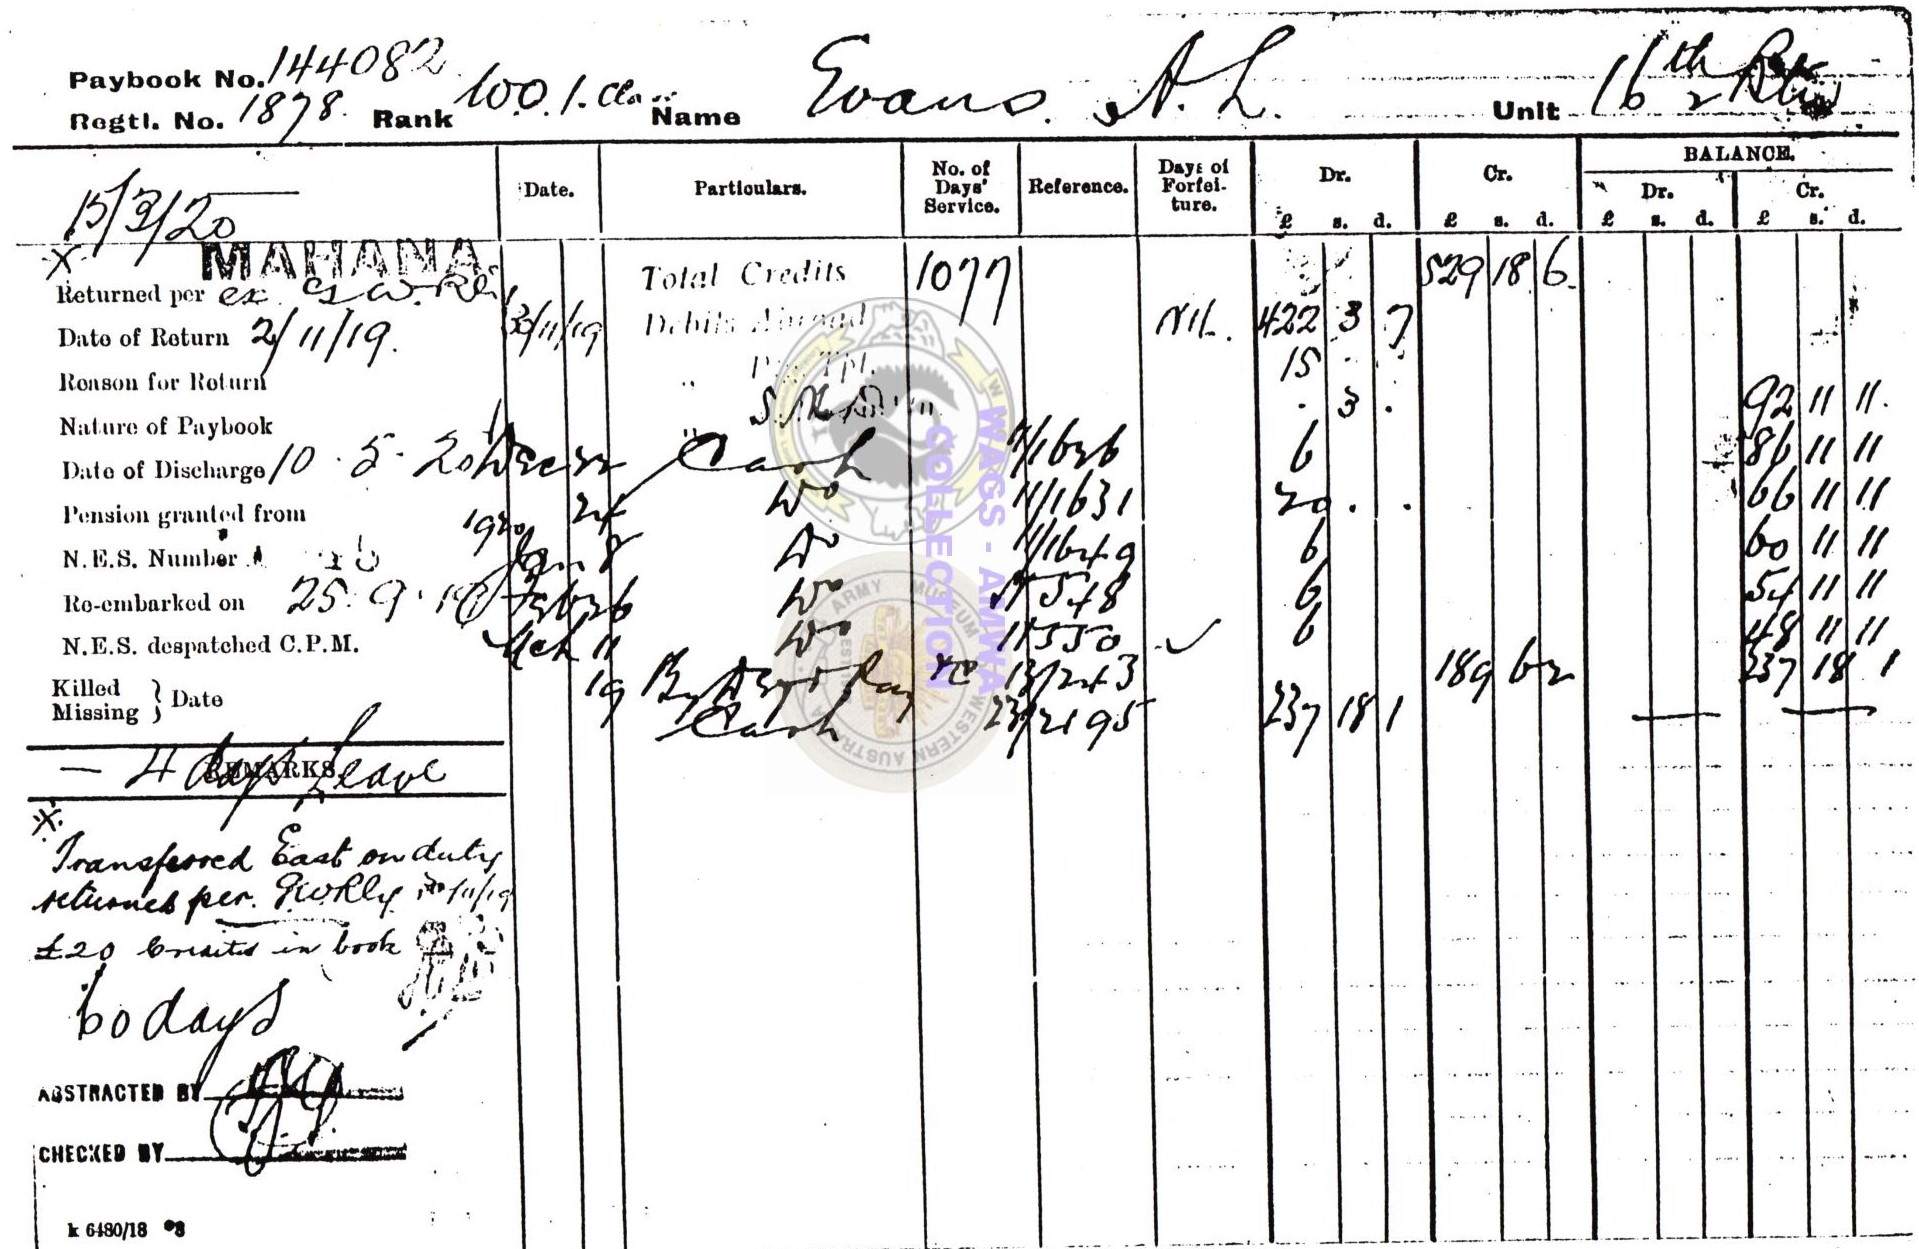 Paybook No. 144082
Regtl. No. 1878. Rank W.O.1. Class Name Evans. A. L. Unit 16th Btn
15/3/20
Date. Particulars. No. of Days' Service. Reference. Days of Forfeiture. Dr. £ s. d. Cr. £ s. d. BALANCE. Dr. £ s. d. Cr. £ s. d.
MAHANA
Returned per ex G.W. Rly
Date of Return 2/11/19.
Reason for Return
Nature of Paybook
Date of Discharge 10.5.20
Pension granted from
N.E.S. Number
Re-embarked on 25.9.19
N.E.S. despatched C.P.M.
Killed
Missing } Date
Total Credits 1077 529 18 6.
Debits Abroad Nil. 422 3 7
" Tpt. 15
" . 3 . 92 11 11.
Cash 6 86 11 11
24 Do 11/1631 20 . . 66 11 11
1920 Jan 8 Do 6 60 11 11
Do 6 54 11 11
Mch 11 Do 6 48 11 11
19 Pay 189 6 2 237 18 1
Cash 23/2195 237 18 1
REMARKS
— 4 days Leave
Transferred East on duty
returned per. G.W. Rly /11/19
£20 Credits in book
60 days
ABSTRACTED BY
CHECKED BY
k 6480/18
WAGS - AMWA
COLLECTION
ARMY MUSEUM
WESTERN AUSTRALIA